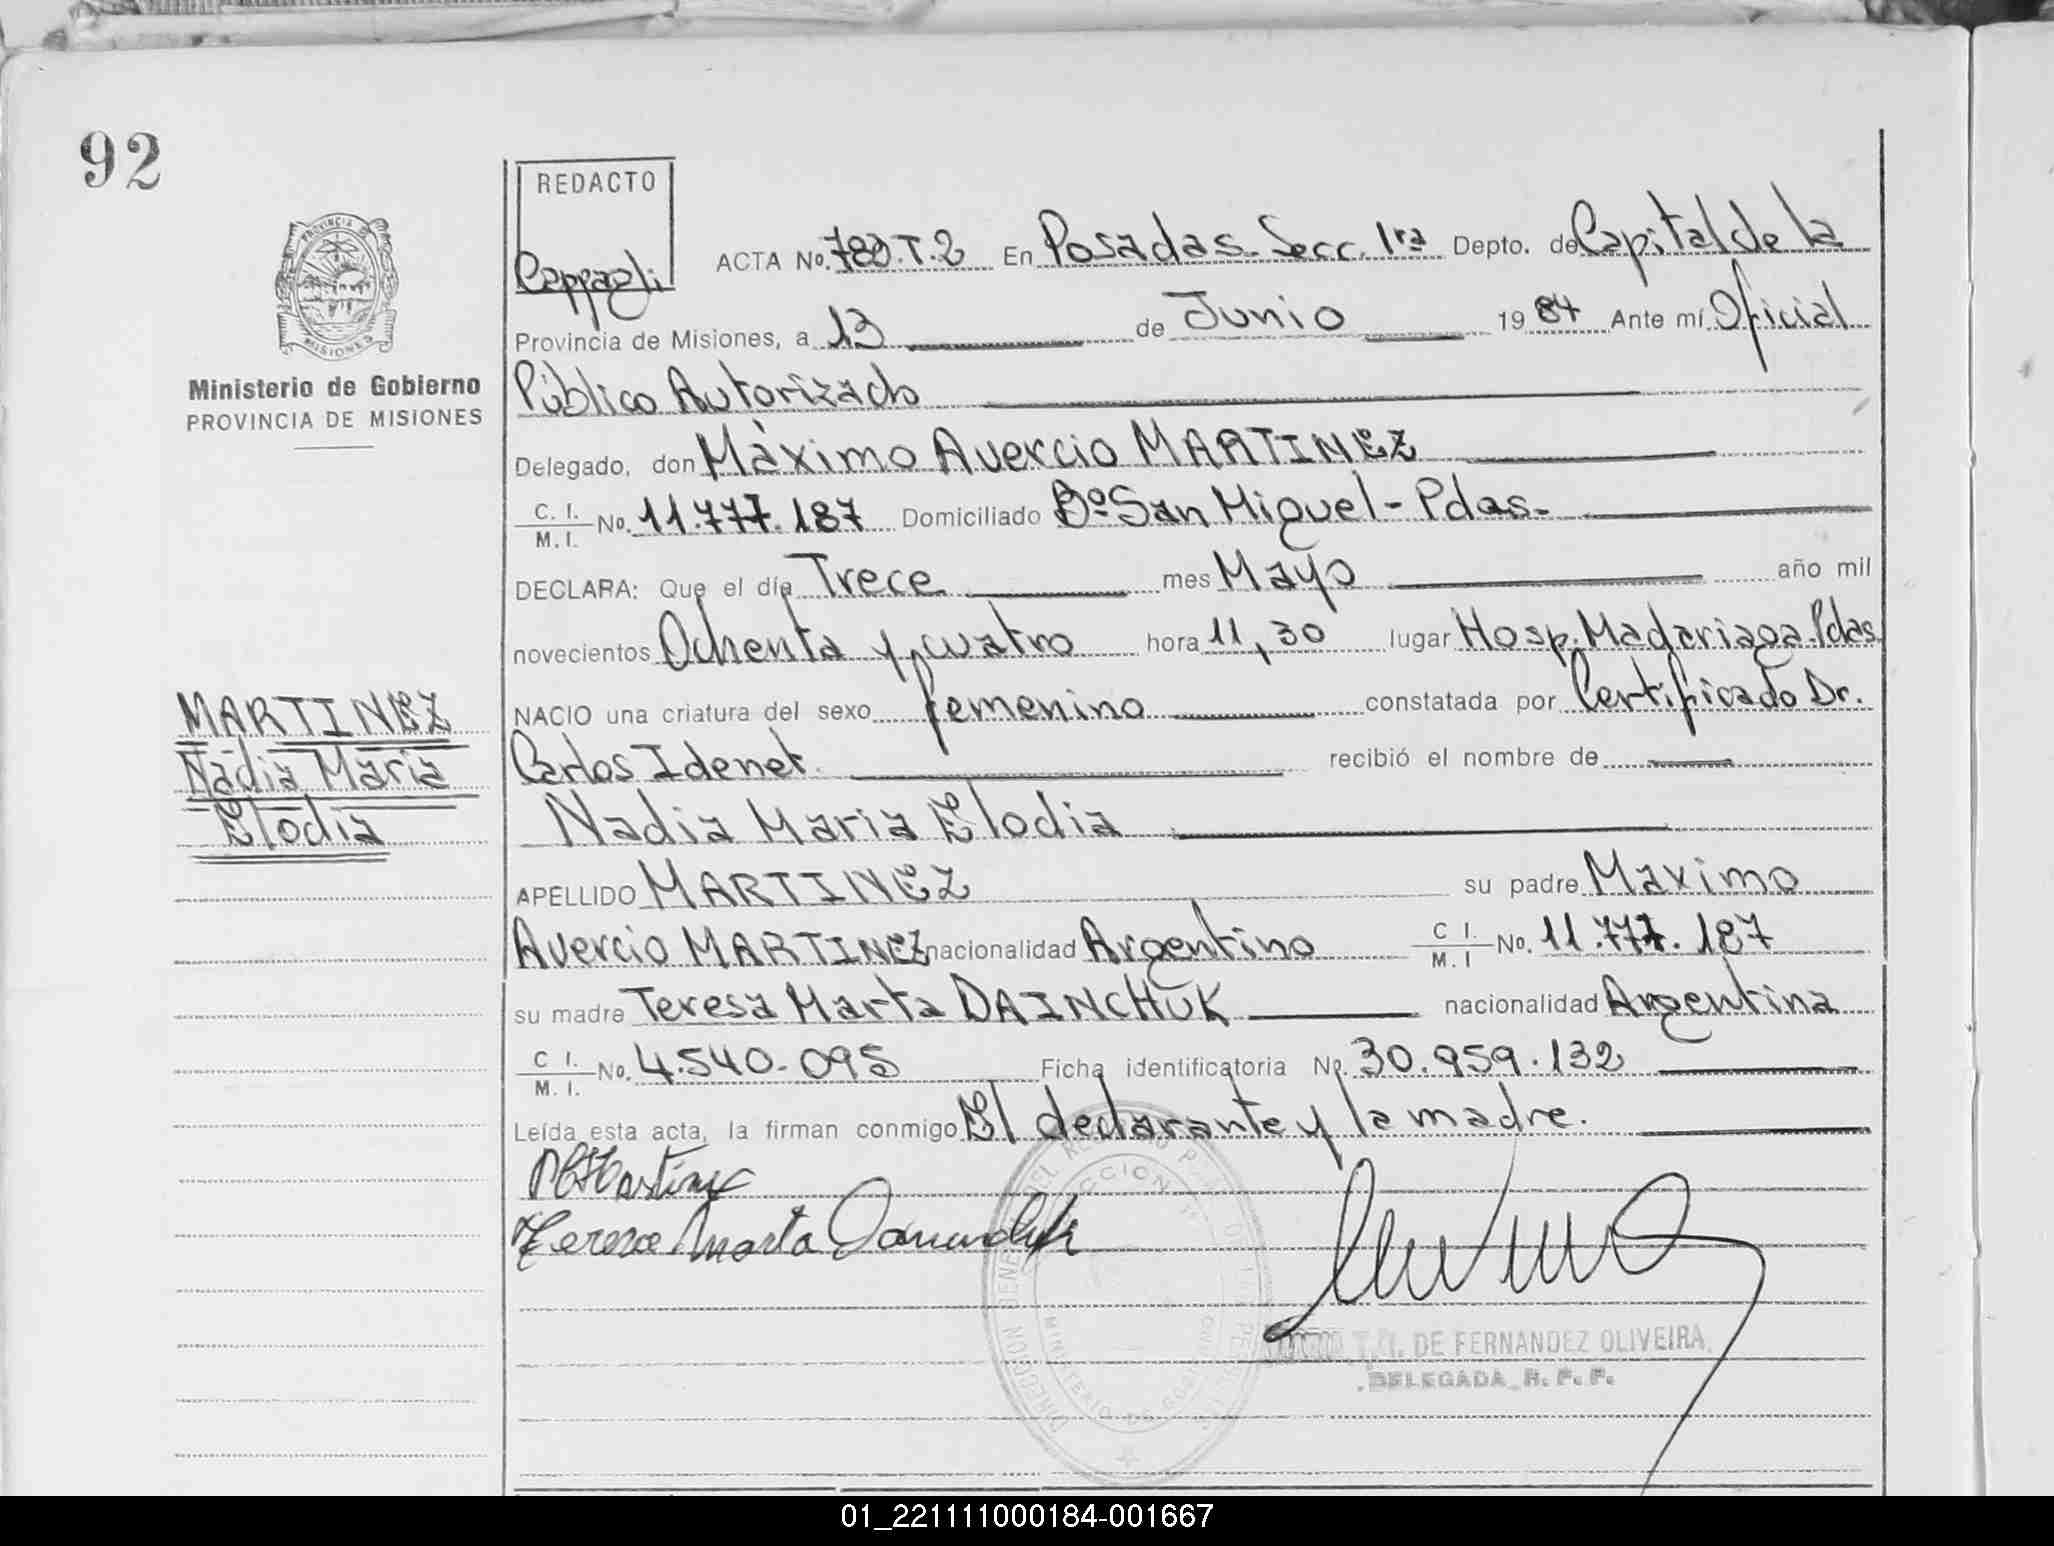 92
REDACTO
PROVINCIA DE
MISIONES
Ministerio de Gobierno
PROVINCIA DE MISIONES
ACTA No. T.2 En Posadas-Secc. 1ra Depto. de Capital de la
Provincia de Misiones, a 13 de Junio 1984 Ante mí Oficial
Público Autorizado
Delegado, don Máximo Avercio MARTINEZ
C. I. / M. I. No. 11.777.187 Domiciliado Bº San Miguel - Pdas-
DECLARA: Que el día Trece mes Mayo año mil
novecientos Ochenta y cuatro hora 11,30 lugar Hosp. Madariaga-Pdas
NACIO una criatura del sexo femenino constatada por Certificado Dr.
Carlos Idenet. recibió el nombre de
Nadia Maria Elodia
APELLIDO MARTINEZ su padre Maximo
Avercio MARTINEZ nacionalidad Argentino C I. / M. I No. 11.777.187
su madre Teresa Marta DAINCHUK nacionalidad Argentina
C I. / M. I. No. 4.540.095 Ficha identificatoria No. 30.959.132
Leída esta acta, la firman conmigo El declarante y la madre.
MARTINEZ
Nadia Maria
Elodia
Teresa Marta
DE FERNANDEZ OLIVEIRA
DELEGADA R. P. P.
01_221111000184-001667